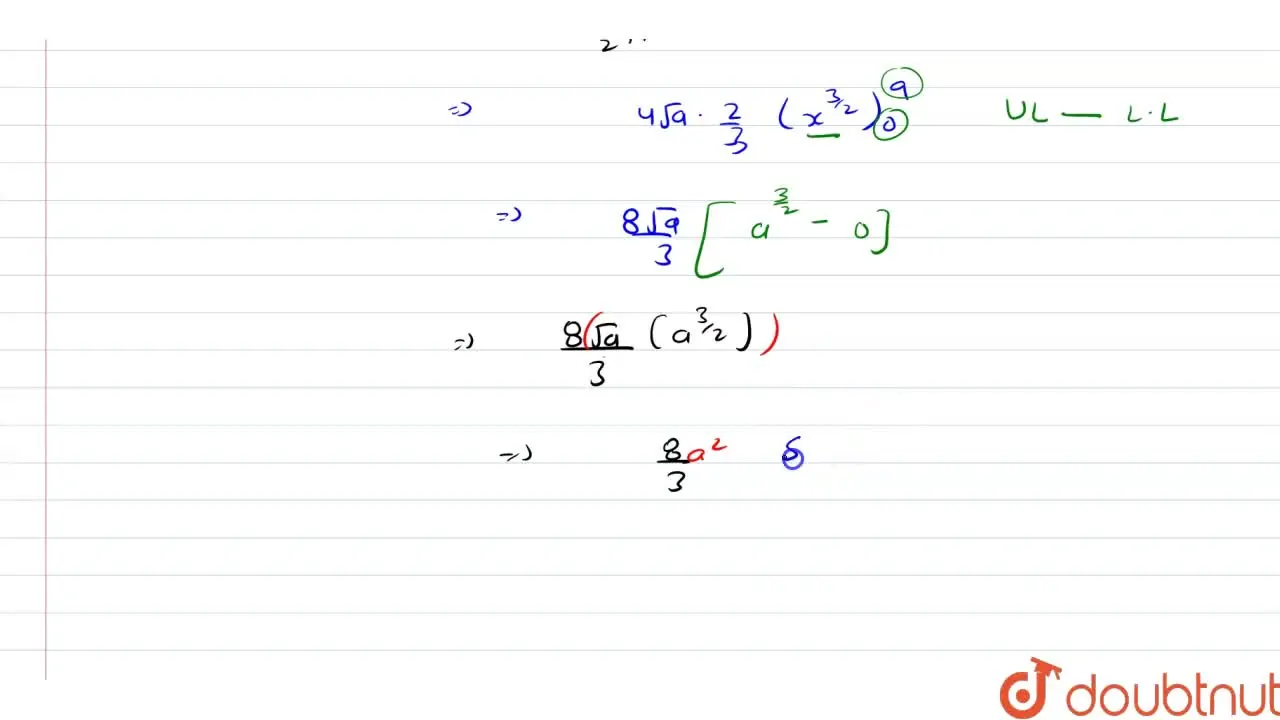 => 4√a · 2/3 (x^3/2)^a_0 UL — L.L
=> 8√a/3 [a^3/2 - 0]
=> 8(√a/3 (a^3/2))
=> 8/3 a^2
doubtnut